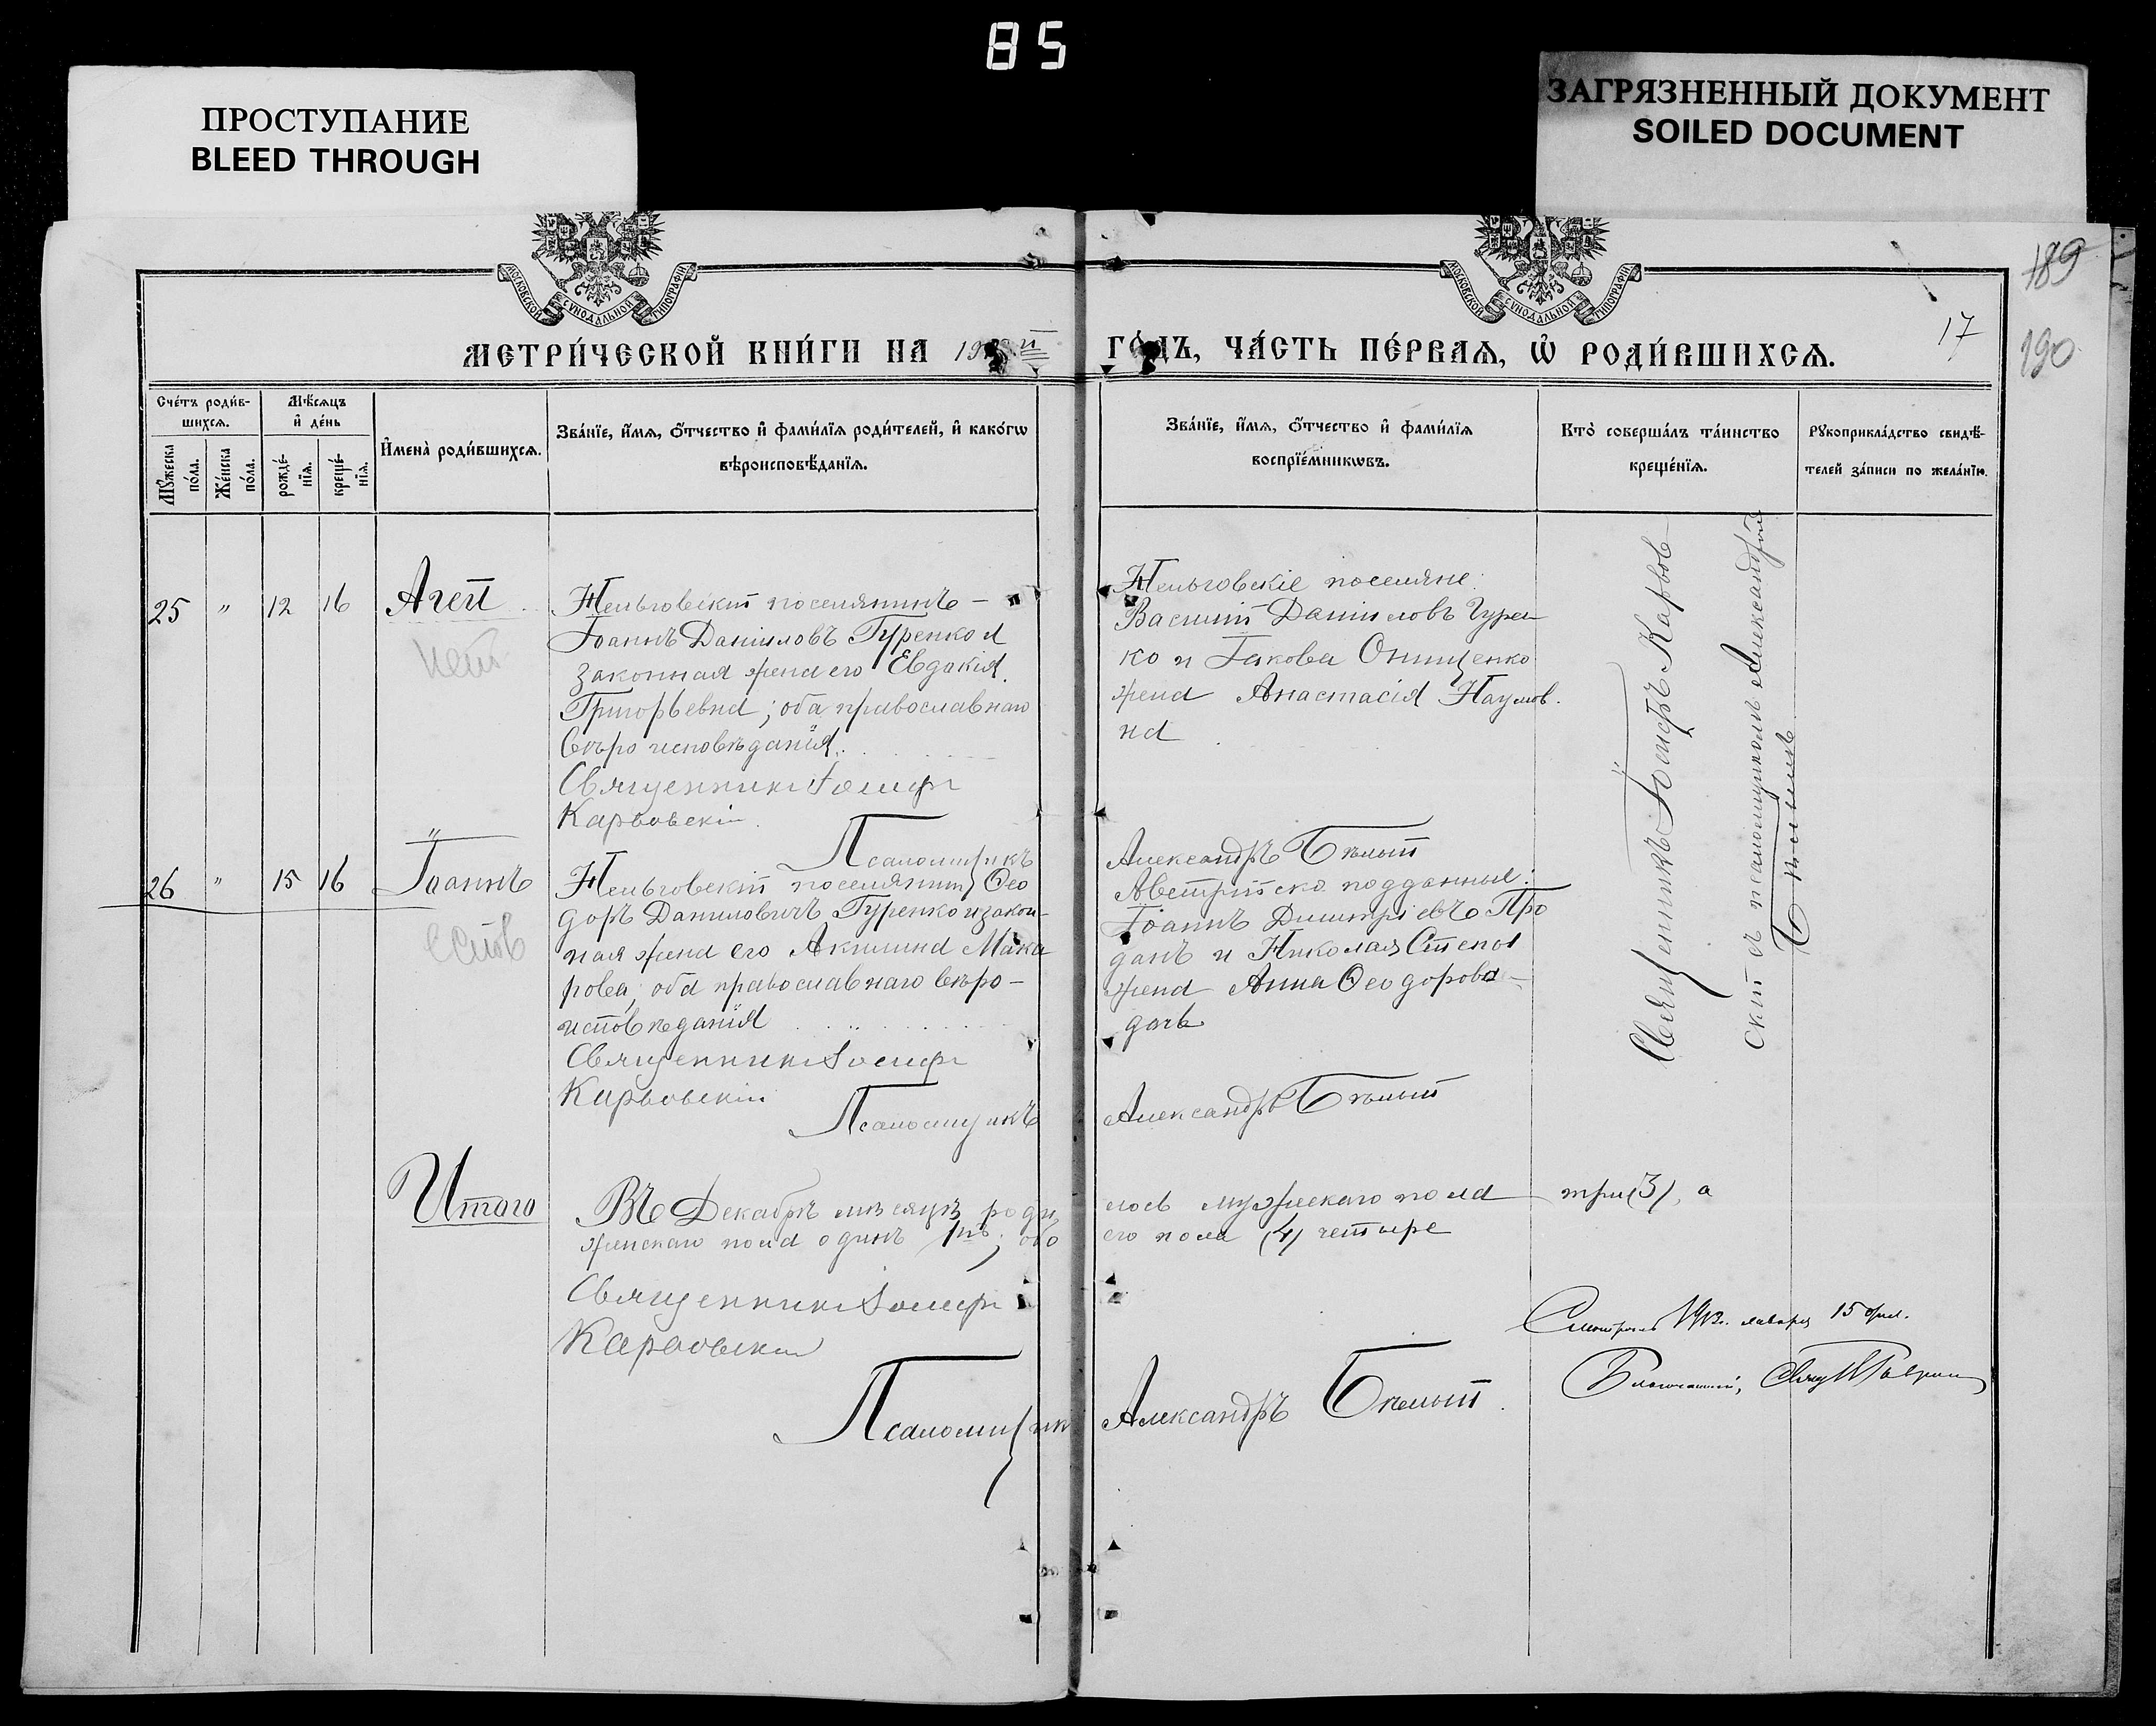 85
ПРОСТУПАНИЕ
BLEED THROUGH
ЗАГРЯЗНЕННЫЙ ДОКУМЕНТ
SOILED DOCUMENT
МОСКОВСКОЙ СѴНОДАЛЬНОЙ ТИПОГРАФІИ
МОСКОВСКОЙ СѴНОДАЛЬНОЙ ТИПОГРАФІИ
189
190
17
МЕТРИ́ЧЕСКОЙ КНИ́ГИ НА 19
ГО́ДЪ, ЧА́СТЬ ПЕ́РВАЯ, Ѡ҆ РОДИ́ВШИХСЯ.
Сче́тъ роди́в-
шихся.
Мꙋ́жеска по́ла.
Же́нска по́ла.
Мѣ́сяцъ
и҆ де́нь
рожде́-
нїя.
креще́-
нїя.
И҆мена̀ роди́вшихся.
Зва́нїе, и҆́мя, ѻ҆́тчество и҆ фами́лїя роди́телей, и҆ како́гѡ
вѣроисповѣ́данїя.
Зва́нїе, и҆́мя, ѻ҆́тчество и҆ фами́лїя
воспрїе́мникѡвъ.
Кто̀ соверша́лъ та́инство
креще́нїя.
Рꙋкоприкла́дство свидѣ́-
телей за́писи по жела́нїю.
25 " 12 16 Агей
нет
Нельговскій поселянинъ —
Іоаннъ Даниловъ Гуренко и
законная жена его Евдокія
Григорьевна; оба православнаго
вѣроисповѣданія.
Священникъ Іосифъ
Карвовскій
Псаломщикъ
Нельговскіе поселяне:
Василій Даниловъ Гурен
ко и Іакова Онищенко
жена Анастасія Наумов.
на
Александръ Бѣлый
26 " 15 16 Іоаннъ
Нельговскій поселянинъ Ѳео
доръ Даниловичъ Гуренко и закон-
ная жена его Акилина Мака
рова; оба православнаго вѣро-
исповѣданія
Священникъ Іосифъ
Карвовскій
Псаломщикъ
Австрійско подданные:
Іоаннъ Димитріевъ Про
данъ и Николая
жена Анна Ѳеодорова
дочь
Александръ Бѣлый
Священникъ Іосифъ Карвов
скій съ псаломщикомъ Александромъ
Бѣлымъ
Итого
Въ Декабрѣ мѣсяцѣ роди
лось мужескаго пола три (3), а
женскаго пола одинъ 1нъ; обо
его пола (4) четыре
Священникъ Іосифъ
Карвовскій
Псаломщик
Александръ Бѣлый
Смотрѣлъ 1913г. января 15 дня.
Благочинный,